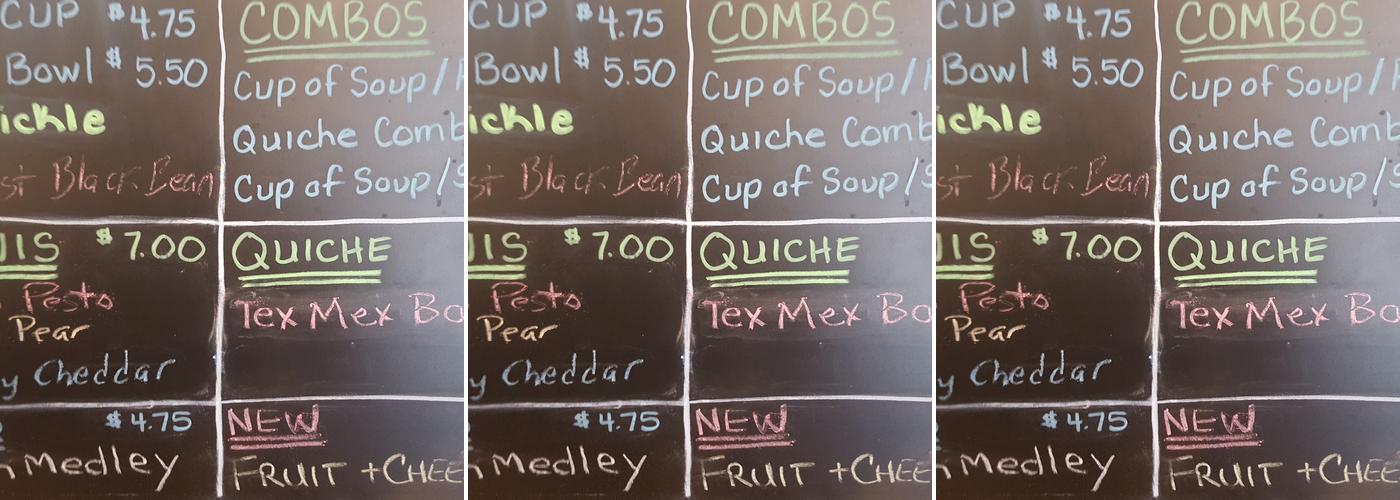 CUP $4.75
Bowl $5.50
ickle
st Black Bean
COMBOS
Cup of Soup/
Quiche Comb
Cup of Soup/S
IS $7.00
Pesto
Pear
y Cheddar
QUICHE
Tex Mex Bo
$4.75
Medley
NEW
FRUIT + CHEE
CUP $4.75
Bowl $5.50
ickle
st Black Bean
COMBOS
Cup of Soup/
Quiche Comb
Cup of Soup/S
IS $7.00
Pesto
Pear
y Cheddar
QUICHE
Tex Mex Bo
$4.75
Medley
NEW
FRUIT + CHEE
CUP $4.75
Bowl $5.50
ickle
st Black Bean
COMBOS
Cup of Soup/
Quiche Comb
Cup of Soup/S
IS $7.00
Pesto
Pear
y Cheddar
QUICHE
Tex Mex Bo
$4.75
Medley
NEW
FRUIT + CHEE